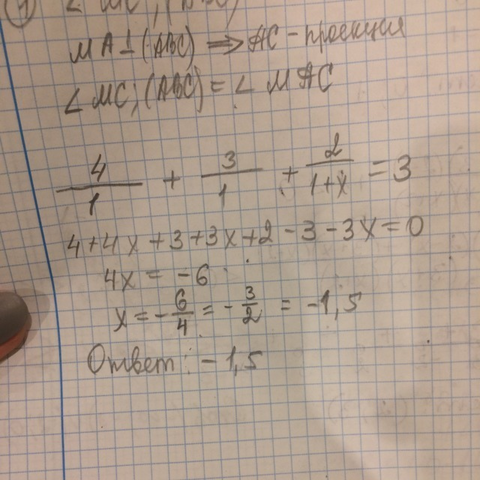 1) ∠ MC;(ABC)
MA⊥(ABC) ⟹ AC - проекция
∠ MC;(ABC) = ∠ MAC
4/1 + 3/1 + 2/(1+x) = 3
4+4x+3+3x+2-3-3x=0
4x = -6
x = -6/4 = -3/2 = -1,5
Ответ: -1,5